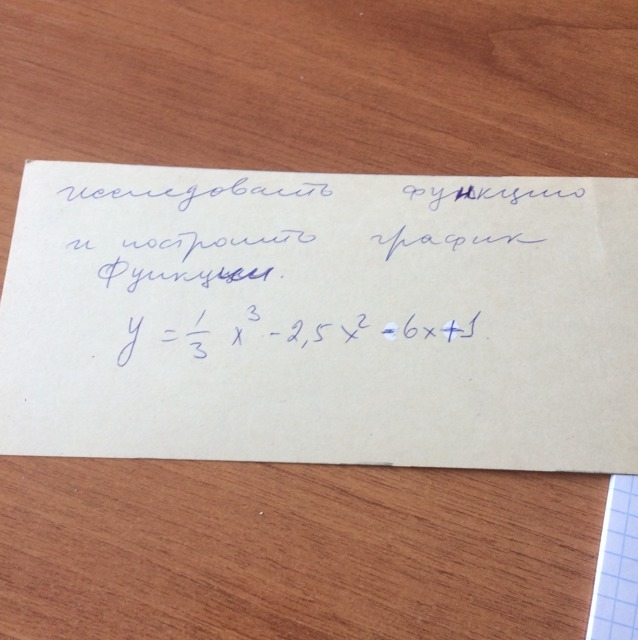 исследовать функцию
и построить график
функции.
y = 1/3 x³ - 2,5x² - 6x + 1